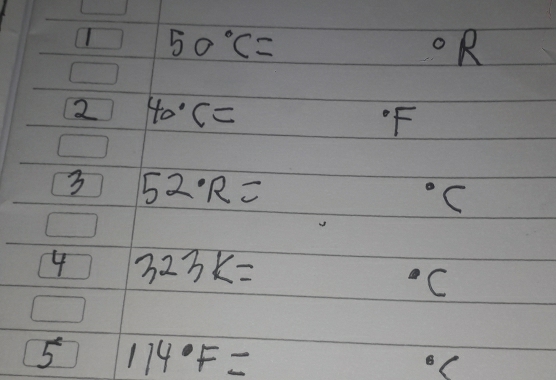 1 50°C= °R
2 40°C= °F
3 52°R= °C
4 323K= °C
5 114°F= °C